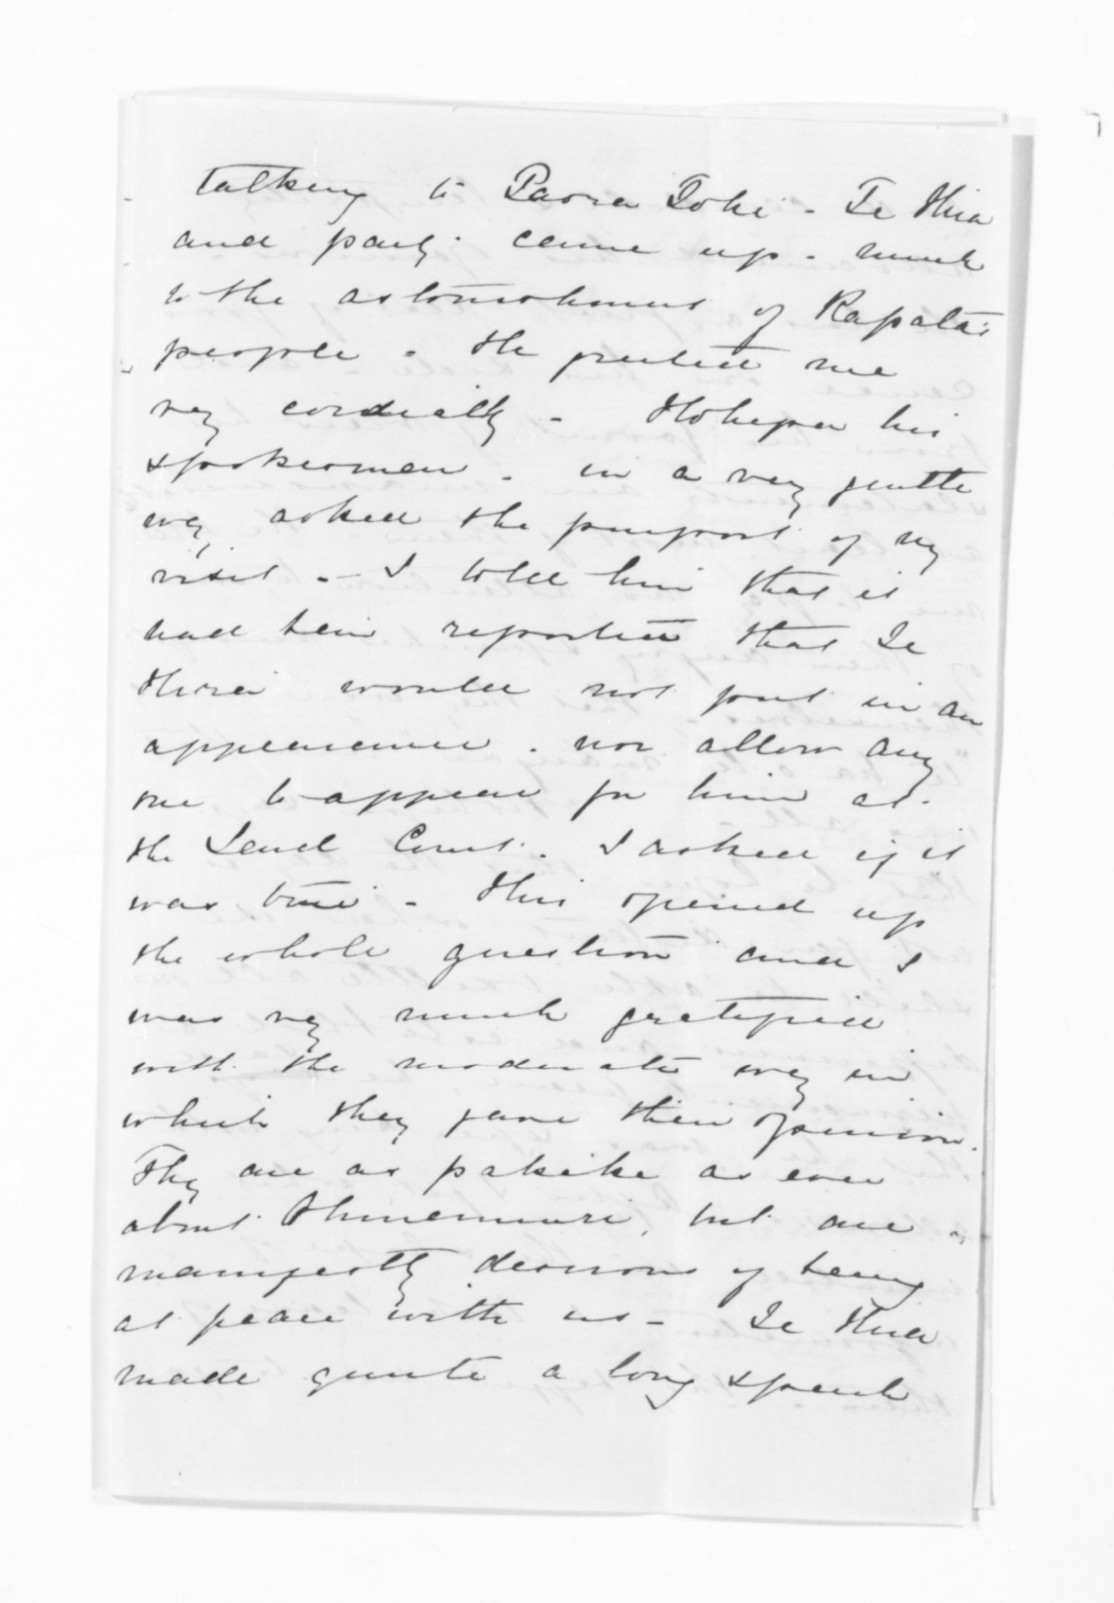 talking to Paora Toki - Te Hira
and party came up. much
to the astonishment of Rapata's
people. He greeted me
very cordially - Hohepa his
spokesman. in a very gentle
way asked the purport of my
visit. - I told him that it
had been reported that Te
Hira would not put in an
appearance. nor allow any
one to appear for him at.
the Land Court. I asked if it
was true - this opened up
the whole question and I
was very much gratified
with the moderate way in
which they gave their opinion.
They are as pakeke as ever
about Ohinemuri, but are
manifestly desirous of being
at peace with us - Te Hira
made quite a long speech